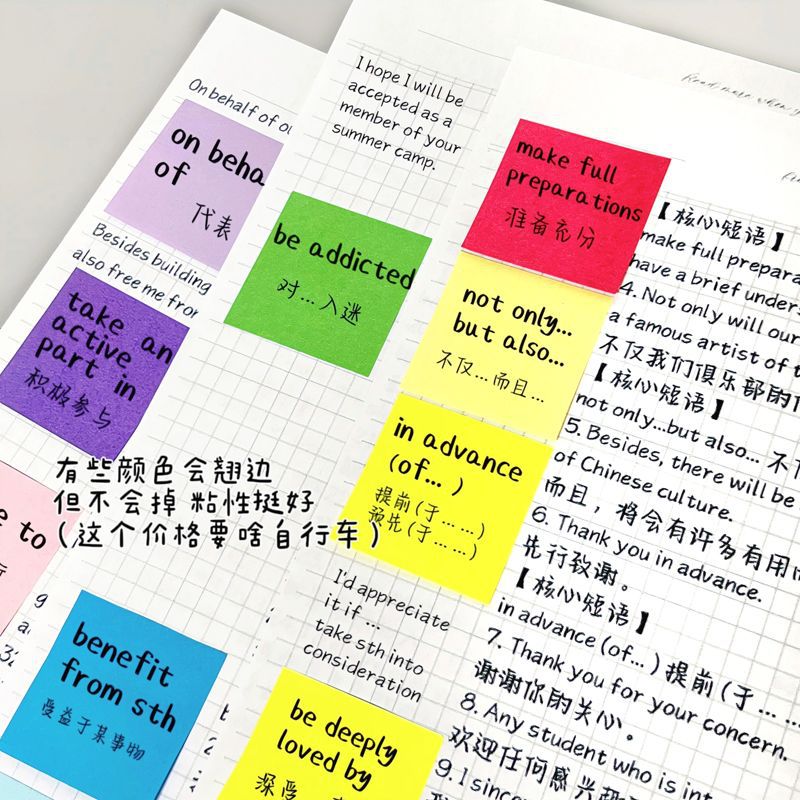 On behalf of
on
of
代表
Besides building
also free me from
take an
active
part in
积极参与
to
benefit
from sth
受益于某事物
I hope I will be
accepted as a
member of your
summer camp.
be addicted
对...入迷
I'd appreciate
it if ...
take sth into
consideration
be deeply
loved by
深受
make full
preparations
准备充分
not only...
but also...
不仅...而且...
in advance
(of... )
提前(于... ...)
预先(于... ...)
【核心短语】
make full
have a brief
4. Not only will our
a famous artist of
不仅我们俱乐部的
【核心短语】
not only...but also... 不
5. Besides, there will be
of Chinese culture.
而且，将会有许多有用
6. Thank you in advance.
先行致谢。
【核心短语】
in advance (of... ) 提前(于... ...
7. Thank you for your concern.
谢谢你的关心。
8. Any student who is
欢迎任何感兴
9. I
有些颜色会翘边
但不会掉 粘性挺好
(这个价格要啥自行车)